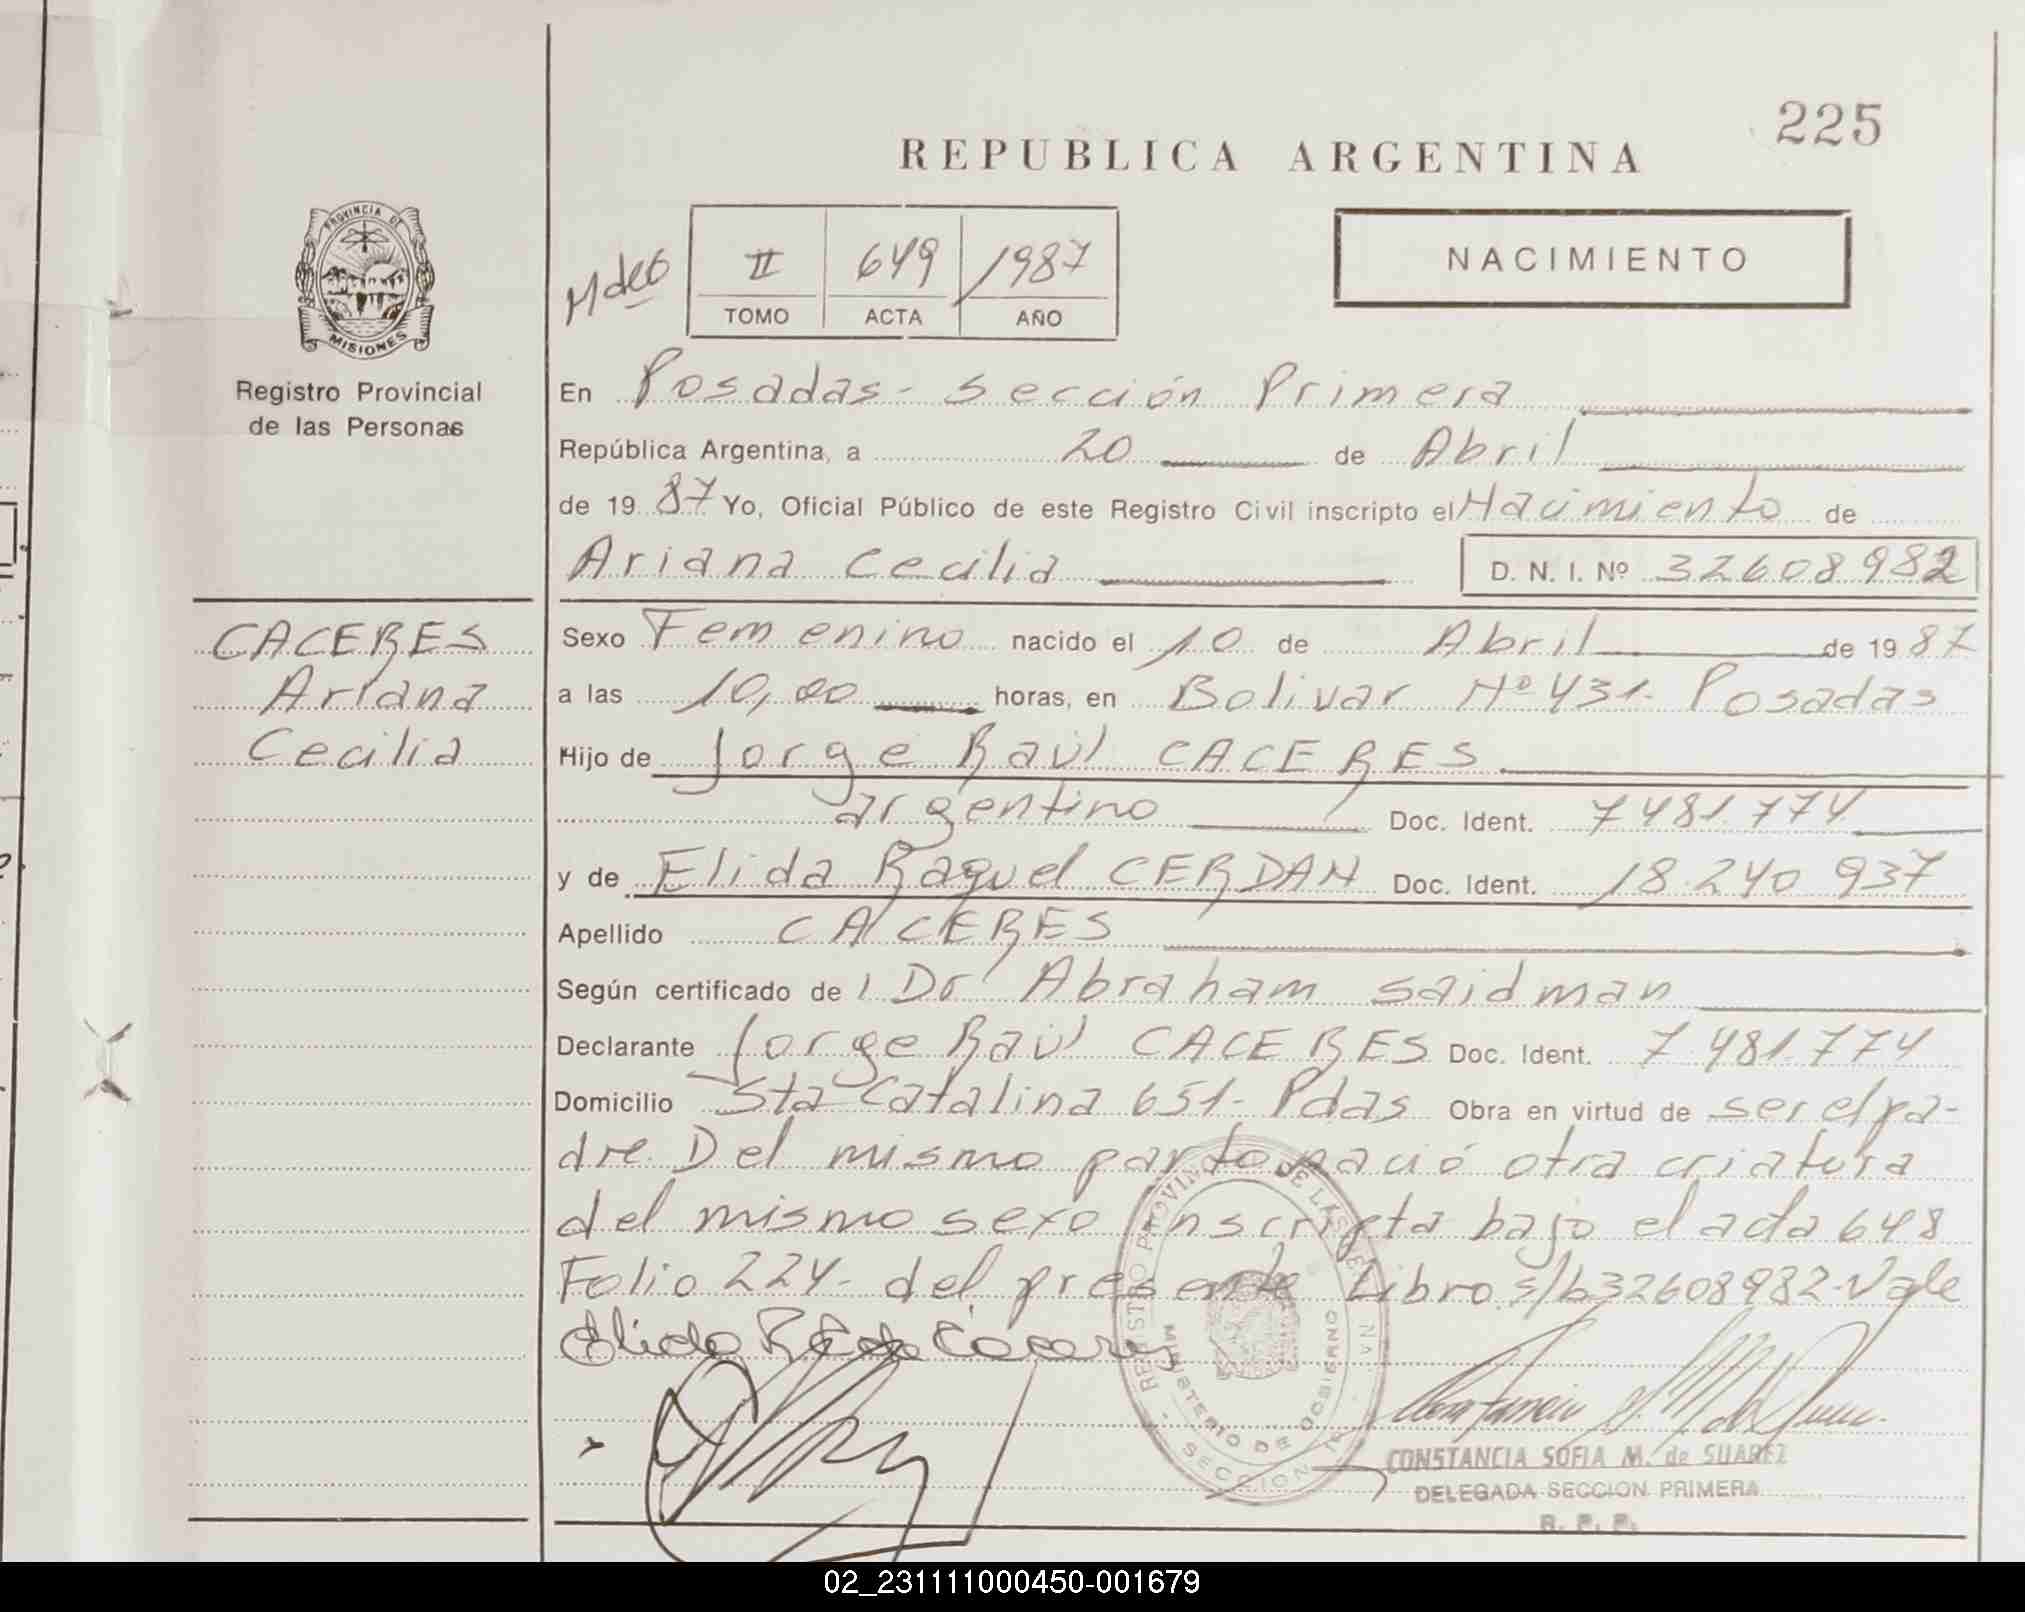 225
REPUBLICA ARGENTINA
NACIMIENTO
II 649 1987
TOMO ACTA AÑO
PROVINCIA DE MISIONES
Registro Provincial
de las Personas
En Posadas - Sección Primera
República Argentina, a 20 de Abril
de 19 87 Yo, Oficial Público de este Registro Civil inscripto el Nacimiento de
Ariana Cecilia D. N. I. Nº 32608982
CACERES
Ariana
Cecilia
Sexo Femenino nacido el 10 de Abril de 19 87
a las 10,00 horas, en Bolivar Nº 431. Posadas
Hijo de Jorge Raúl CACERES
argentino Doc. Ident. 7481.774
y de Elida Raquel CERDAN Doc. Ident. 18.240 937
Apellido CACERES
Según certificado de l Dr Abraham Saidman
Declarante Jorge Raúl CACERES Doc. Ident. 7.481.774
Domicilio Sta Catalina 651- Pdas Obra en virtud de ser el pa-
dre. Del mismo parto nació otra criatura
del mismo sexo inscripta bajo el acta 648
Folio 224- del presente Libro. s/b 32608982-Vale
Elida R C de Caceres
REGISTRO PROVINCIAL DE LAS PERSONAS
MINISTERIO DE GOBIERNO
SECCION 1ª
CONSTANCIA SOFIA M. de SUAREZ
DELEGADA SECCION PRIMERA
R. P. P.
02_231111000450-001679